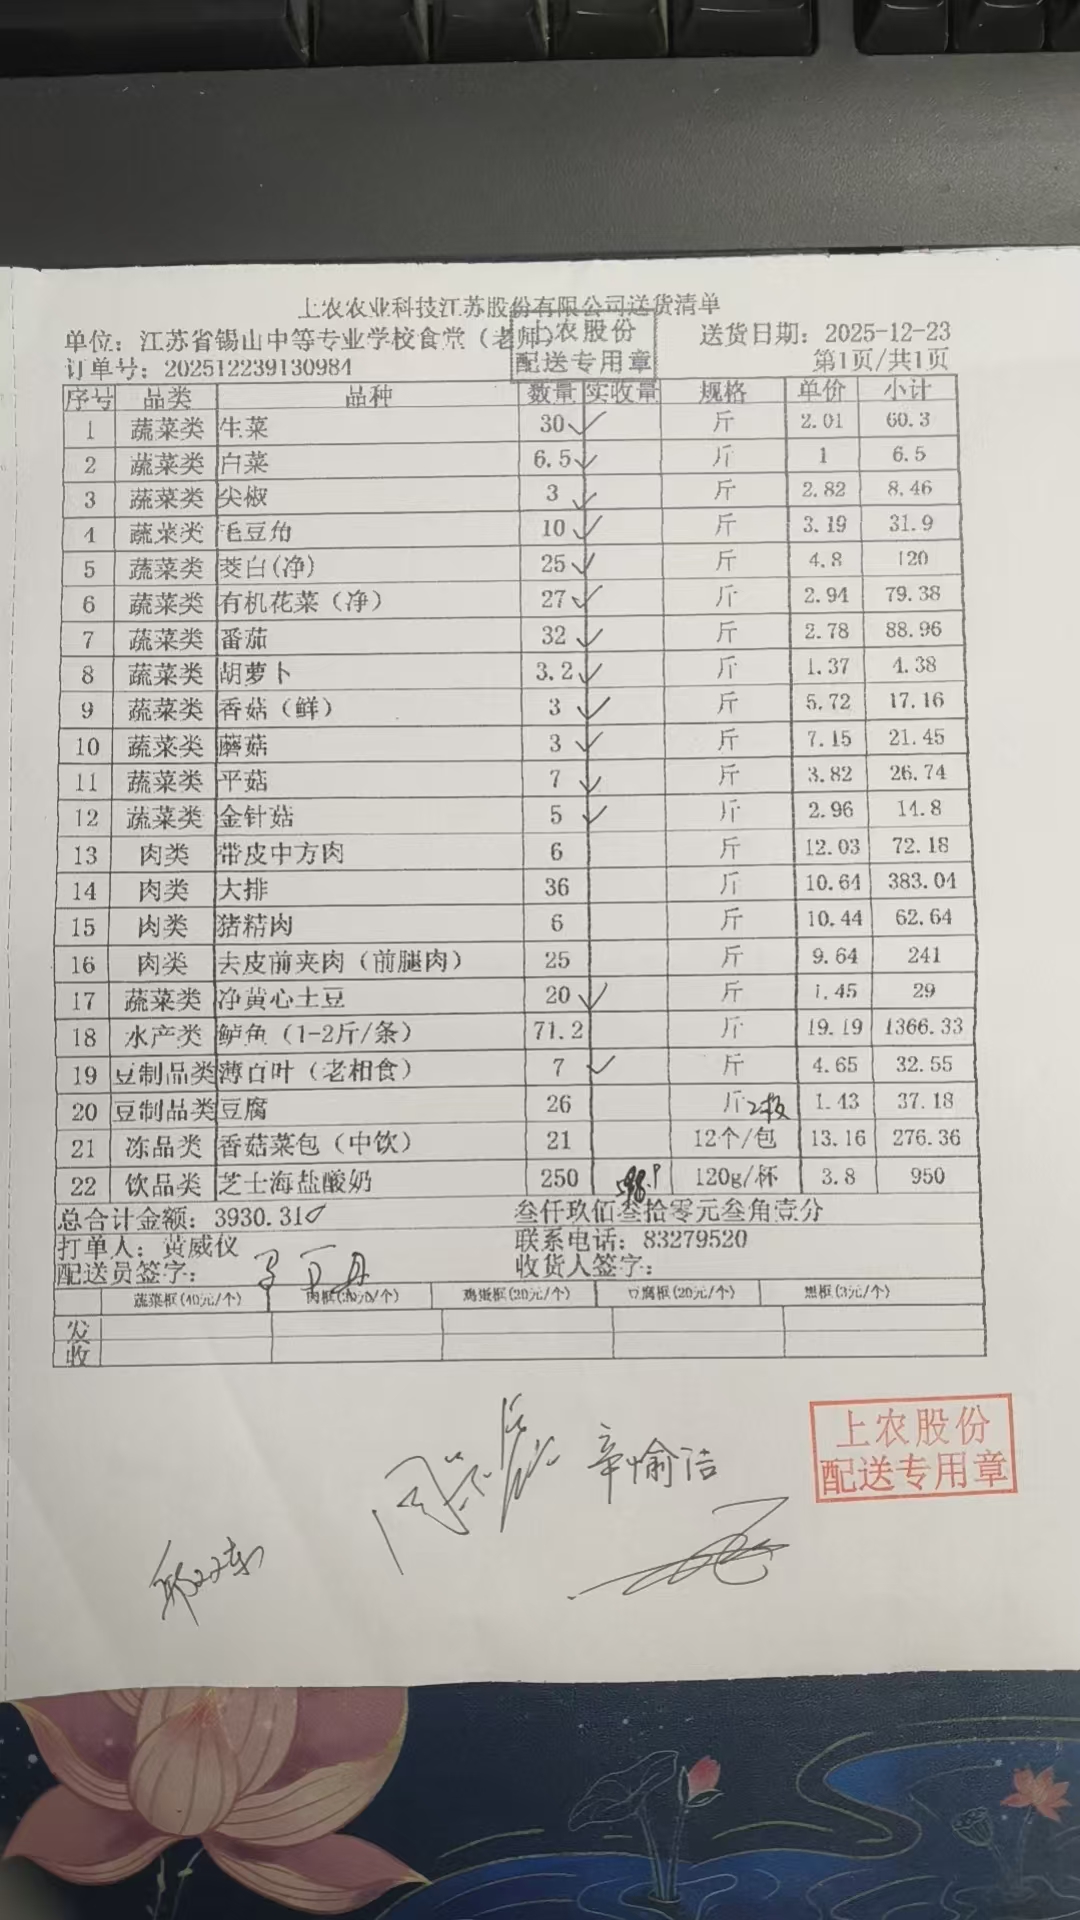 上农农业科技江苏股份有限公司送货清单
单位：江苏省锡山中等专业学校食堂（老师）
上农股份
配送专用章
送货日期：2025-12-23
订单号：202512239130984
第1页/共1页
序号 品类 品种 数量 实收量 规格 单价 小计
1 蔬菜类 生菜 30 ✓ 斤 2.01 60.3
2 蔬菜类 白菜 6.5 ✓ 斤 1 6.5
3 蔬菜类 尖椒 3 ✓ 斤 2.82 8.46
4 蔬菜类 毛豆角 10 ✓ 斤 3.19 31.9
5 蔬菜类 茭白(净) 25 ✓ 斤 4.8 120
6 蔬菜类 有机花菜（净） 27 ✓ 斤 2.94 79.38
7 蔬菜类 番茄 32 ✓ 斤 2.78 88.96
8 蔬菜类 胡萝卜 3.2 ✓ 斤 1.37 4.38
9 蔬菜类 香菇（鲜） 3 ✓ 斤 5.72 17.16
10 蔬菜类 蘑菇 3 ✓ 斤 7.15 21.45
11 蔬菜类 平菇 7 ✓ 斤 3.82 26.74
12 蔬菜类 金针菇 5 ✓ 斤 2.96 14.8
13 肉类 带皮中方肉 6 斤 12.03 72.18
14 肉类 大排 36 斤 10.64 383.04
15 肉类 猪精肉 6 斤 10.44 62.64
16 肉类 去皮前夹肉（前腿肉） 25 斤 9.64 241
17 蔬菜类 净黄心土豆 20 ✓ 斤 1.45 29
18 水产类 鲈鱼（1-2斤/条） 71.2 斤 19.19 1366.33
19 豆制品类 薄百叶（老相食） 7 ✓ 斤 4.65 32.55
20 豆制品类 豆腐 26 斤 2板 1.43 37.18
21 冻品类 香菇菜包（中饮） 21 12个/包 13.16 276.36
22 饮品类 芝士海盐酸奶 250 120g/杯 3.8 950
总合计金额：3930.31 叁仟玖佰叁拾零元叁角壹分
打单人：黄威仪 联系电话：83279520
配送员签字： 收货人签字：
蔬菜框(40元/个) 肉框(30元/个) 鸡蛋框(20元/个) 豆腐框(20元/个) 黑框(3元/个)
发
收
章愉洁
上农股份
配送专用章